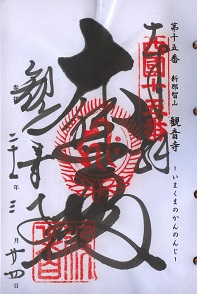 第十五番 新那智山 観音寺
-いまくまのかんのんじ-
奉拝
西國十五番
大悲殿
観音寺
年三月廿四日